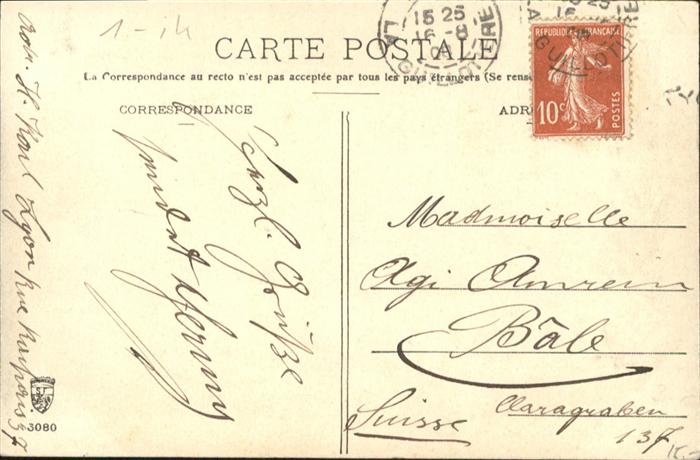 1-14
CARTE POSTALE
La Correspondance au recto n'est pas acceptée par tous les pays étrangers (Se rense
CORRESPONDANCE
ADR
15 25
16-8
LA GUILLOTIERE
REPUBLIQUE FRANÇAISE
10c
POSTES
Herzl. Grüße
sendet
H. Karl Lyon Rue 37
3080
Madmoiselle
Agi Amrein
Bâle
Suisse
Claragraben
137